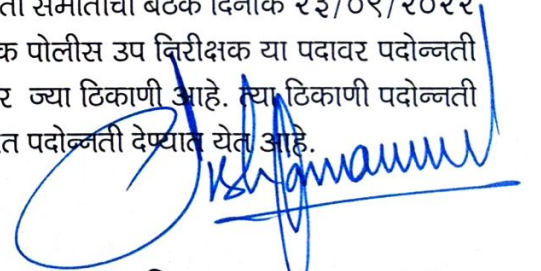 समितीची बैठक दिनांक २३/०९/२०२२
पोलीस उप निरीक्षक या पदावर पदोन्नती
ज्या ठिकाणी आहे. त्या ठिकाणी पदोन्नती
पदोन्नती देण्यात येत आहे.